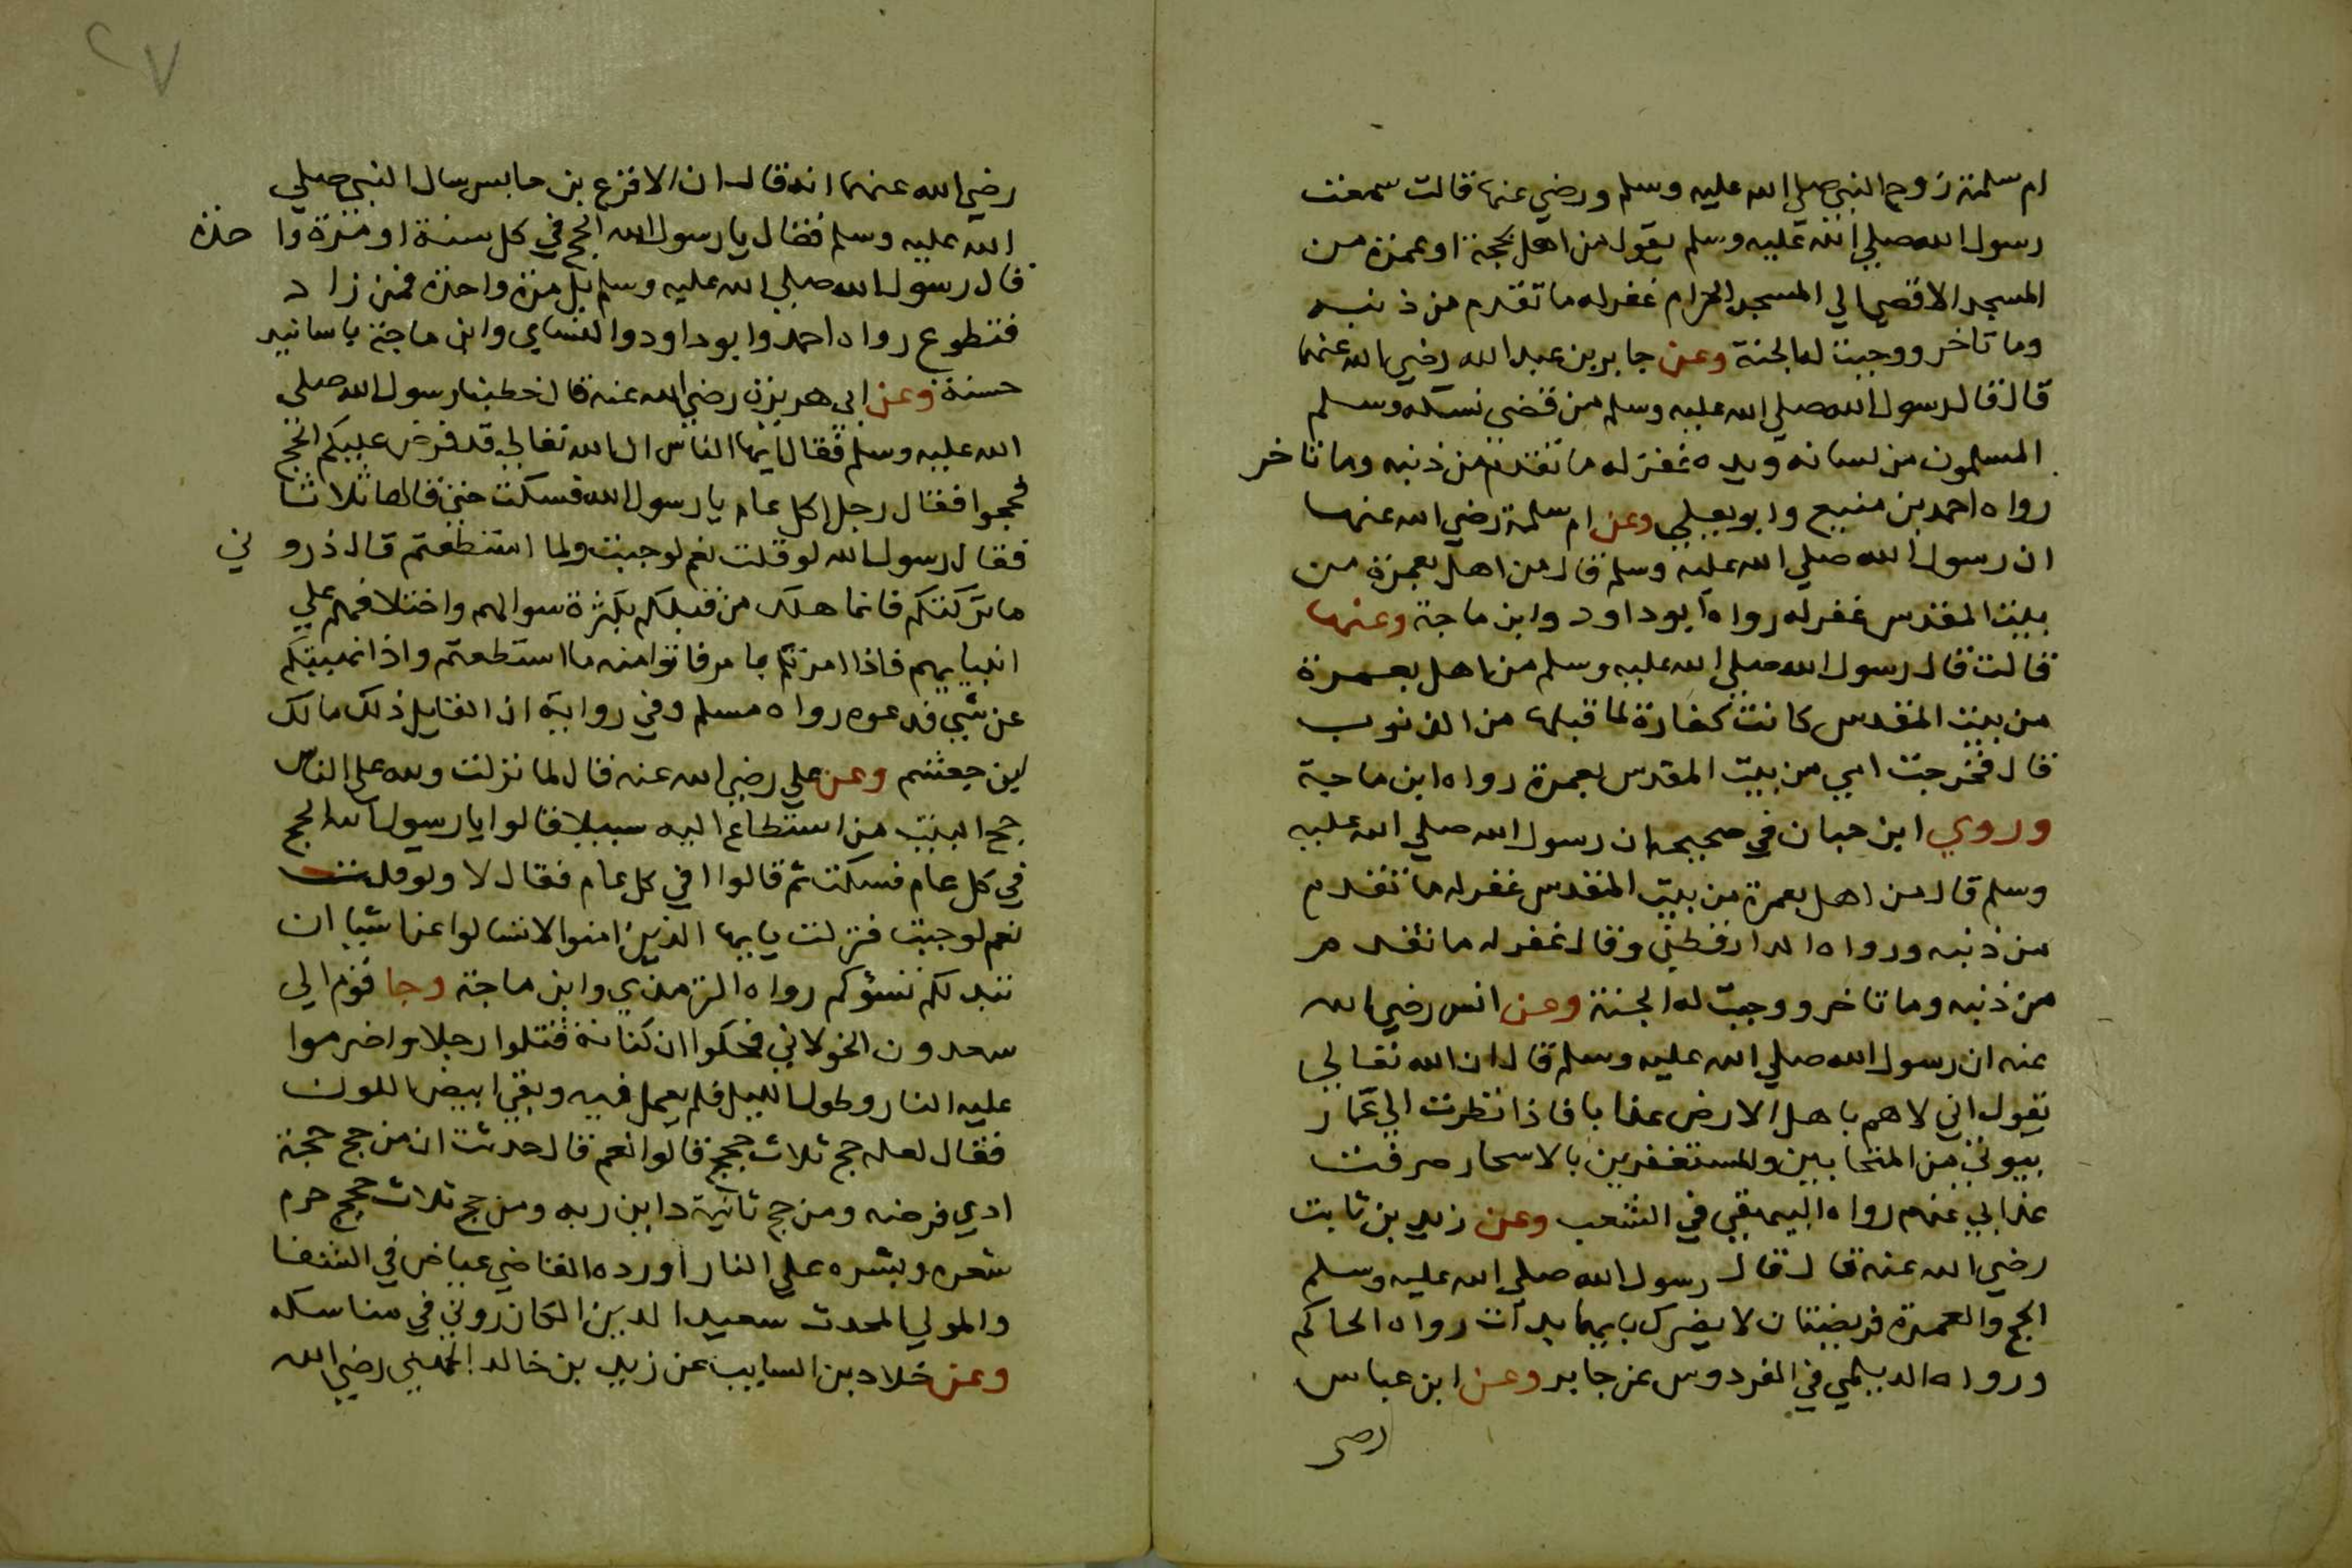 ام سلمة زوج النبي صلي الله عليه وسلم ورضي عنها قالت سمعت
رسول الله صلي الله عليه وسلم يقول من اهل بحجة او عمرة من
المسجد الاقصي الي المسجد الحرام غفر له ما تقدم من ذنبه
وما تاخر ووجبت له الجنة وعن جابر بن عبد الله رضي الله عنهما
قال قال رسول الله صلي الله عليه وسلم من قضي نسكه وسلم
المسلمون من لسانه ويده غفر له ما تقدم من ذنبه وما تاخر
رواه احمد بن منيع وابو يعلي وعن ام سلمة رضي الله عنها
ان رسول الله صلي الله عليه وسلم قال من اهل بعمرة من
بيت المقدس غفر له رواه ابو داود وابن ماجة وعنها
قالت قال رسول الله صلي الله عليه وسلم من اهل بعمرة
من بيت المقدس كانت كفارة لما قبلها من الذنوب
قال فخرجت امي من بيت المقدس بعمرة رواه ابن ماجة
وروي ابن حبان في صحيحه ان رسول الله صلي الله عليه
وسلم قال من اهل بعمرة من بيت المقدس غفر له ما تقدم
من ذنبه ورواه الدارقطني وقال غفر له ما تقدم
من ذنبه وما تاخر ووجبت له الجنة وعن انس رضي الله
عنه ان رسول الله صلي الله عليه وسلم قال ان الله تعالي
يقول اني لاهم باهل الارض عذابا فاذا نظرت الي عمار
بيوتي من المتحابين والمستغفرين بالاسحار صرفت
عذابي عنهم رواه البيهقي في الشعب وعن زيد بن ثابت
رضي الله عنه قال قال رسول الله صلي الله عليه وسلم
الحج والعمرة فريضتان لا يضرك بايهما بدأت رواه الحاكم
ورواه الديلمي في الفردوس عن جابر وعن ابن عباس
رضي
٢٧
رضي الله عنهما انه قال ان الاقرع بن حابس سال النبي صلي
الله عليه وسلم فقال يا رسول الله الحج في كل سنة او مرة واحدة
قال رسول الله صلي الله عليه وسلم بل مرة واحدة فمن زاد
فتطوع رواه احمد وابو داود والنساي وابن ماجة باسانيد
حسنة وعن ابي هريرة رضي الله عنه قال خطبنا رسول الله صلي
الله عليه وسلم فقال ايها الناس ان الله تعالي قد فرض عليكم الحج
فحجوا فقال رجل اكل عام يا رسول الله فسكت حتى قالها ثلاثا
فقال رسول الله لو قلت نعم لوجبت ولما استطعتم قال ذروني
ما تركتكم فانما هلك من قبلكم بكثرة سوالهم واختلافهم علي
انبيايهم فاذا امرتكم بامر فاتوا منه ما استطعتم واذا نهيتكم
عن شي فدعوه رواه مسلم وفي رواية ان القايل ذلك مالك
ابن جعشم وعن علي رضي الله عنه قال لما نزلت ولله على الناس
حج البيت من استطاع اليه سبيلا قالوا يا رسول الله الحج
في كل عام فسكت ثم قالوا افي كل عام فقال لا ولو قلت
نعم لوجبت فنزلت يايها الذين امنوا لا تسالوا عن اشيا ان
تبد لكم تسؤكم رواه الترمذي وابن ماجة وجا قوم الي
سعدون الخولاني فحكوا ان كتامة قتلوا رجلا واضرموا
عليه النار وطول الليل فلم يعمل فيه وبقي ابيض اللون
فقال لعله حج ثلاث حجج قالوا نعم قال حدثت ان من حج حجة
ادي فرضه ومن حج ثانية داين ربه ومن حج ثلاث حجج حرم
شعره وبشره علي النار اورده القاضي عياض في الشفا
والمولي المحدث سعيد الدين الكازروني في مناسكه
وعن خلاد بن السايب عن زيد بن خالد الجهني رضي الله